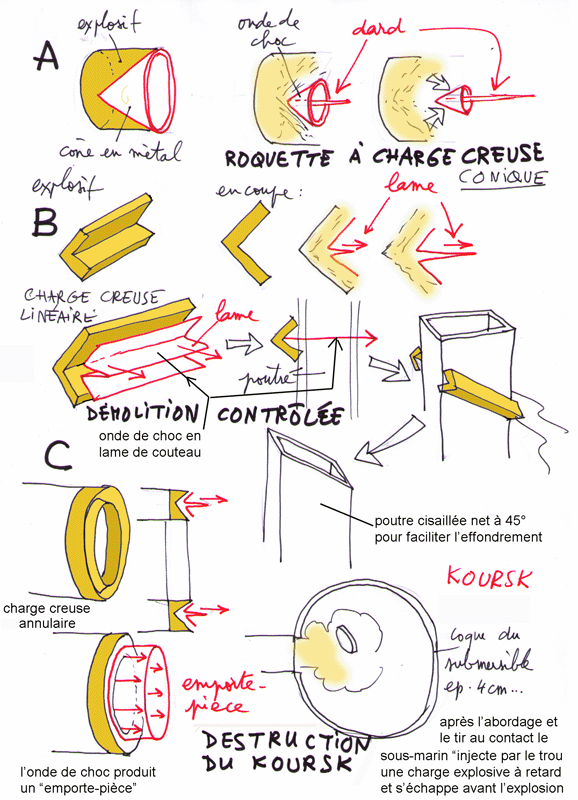 A
explosif
cône en métal
onde de
choc
dard
ROQUETTE À CHARGE CREUSE
CONIQUE
B
explosif
en coupe :
lame
CHARGE CREUSE
LINÉAIRE
lame
poutre
DÉMOLITION CONTRÔLÉE
onde de choc en
lame de couteau
C
poutre cisaillée net à 45°
pour faciliter l'effondrement
charge creuse
annulaire
KOURSK
coque du
submersible
ép. 4 cm...
emporte-
pièce
DESTRUCTION
DU KOURSK
l'onde de choc produit
un "emporte-pièce"
après l'abordage et
le tir au contact le
sous-marin "injecte par le trou
une charge explosive à retard
et s'échappe avant l'explosion